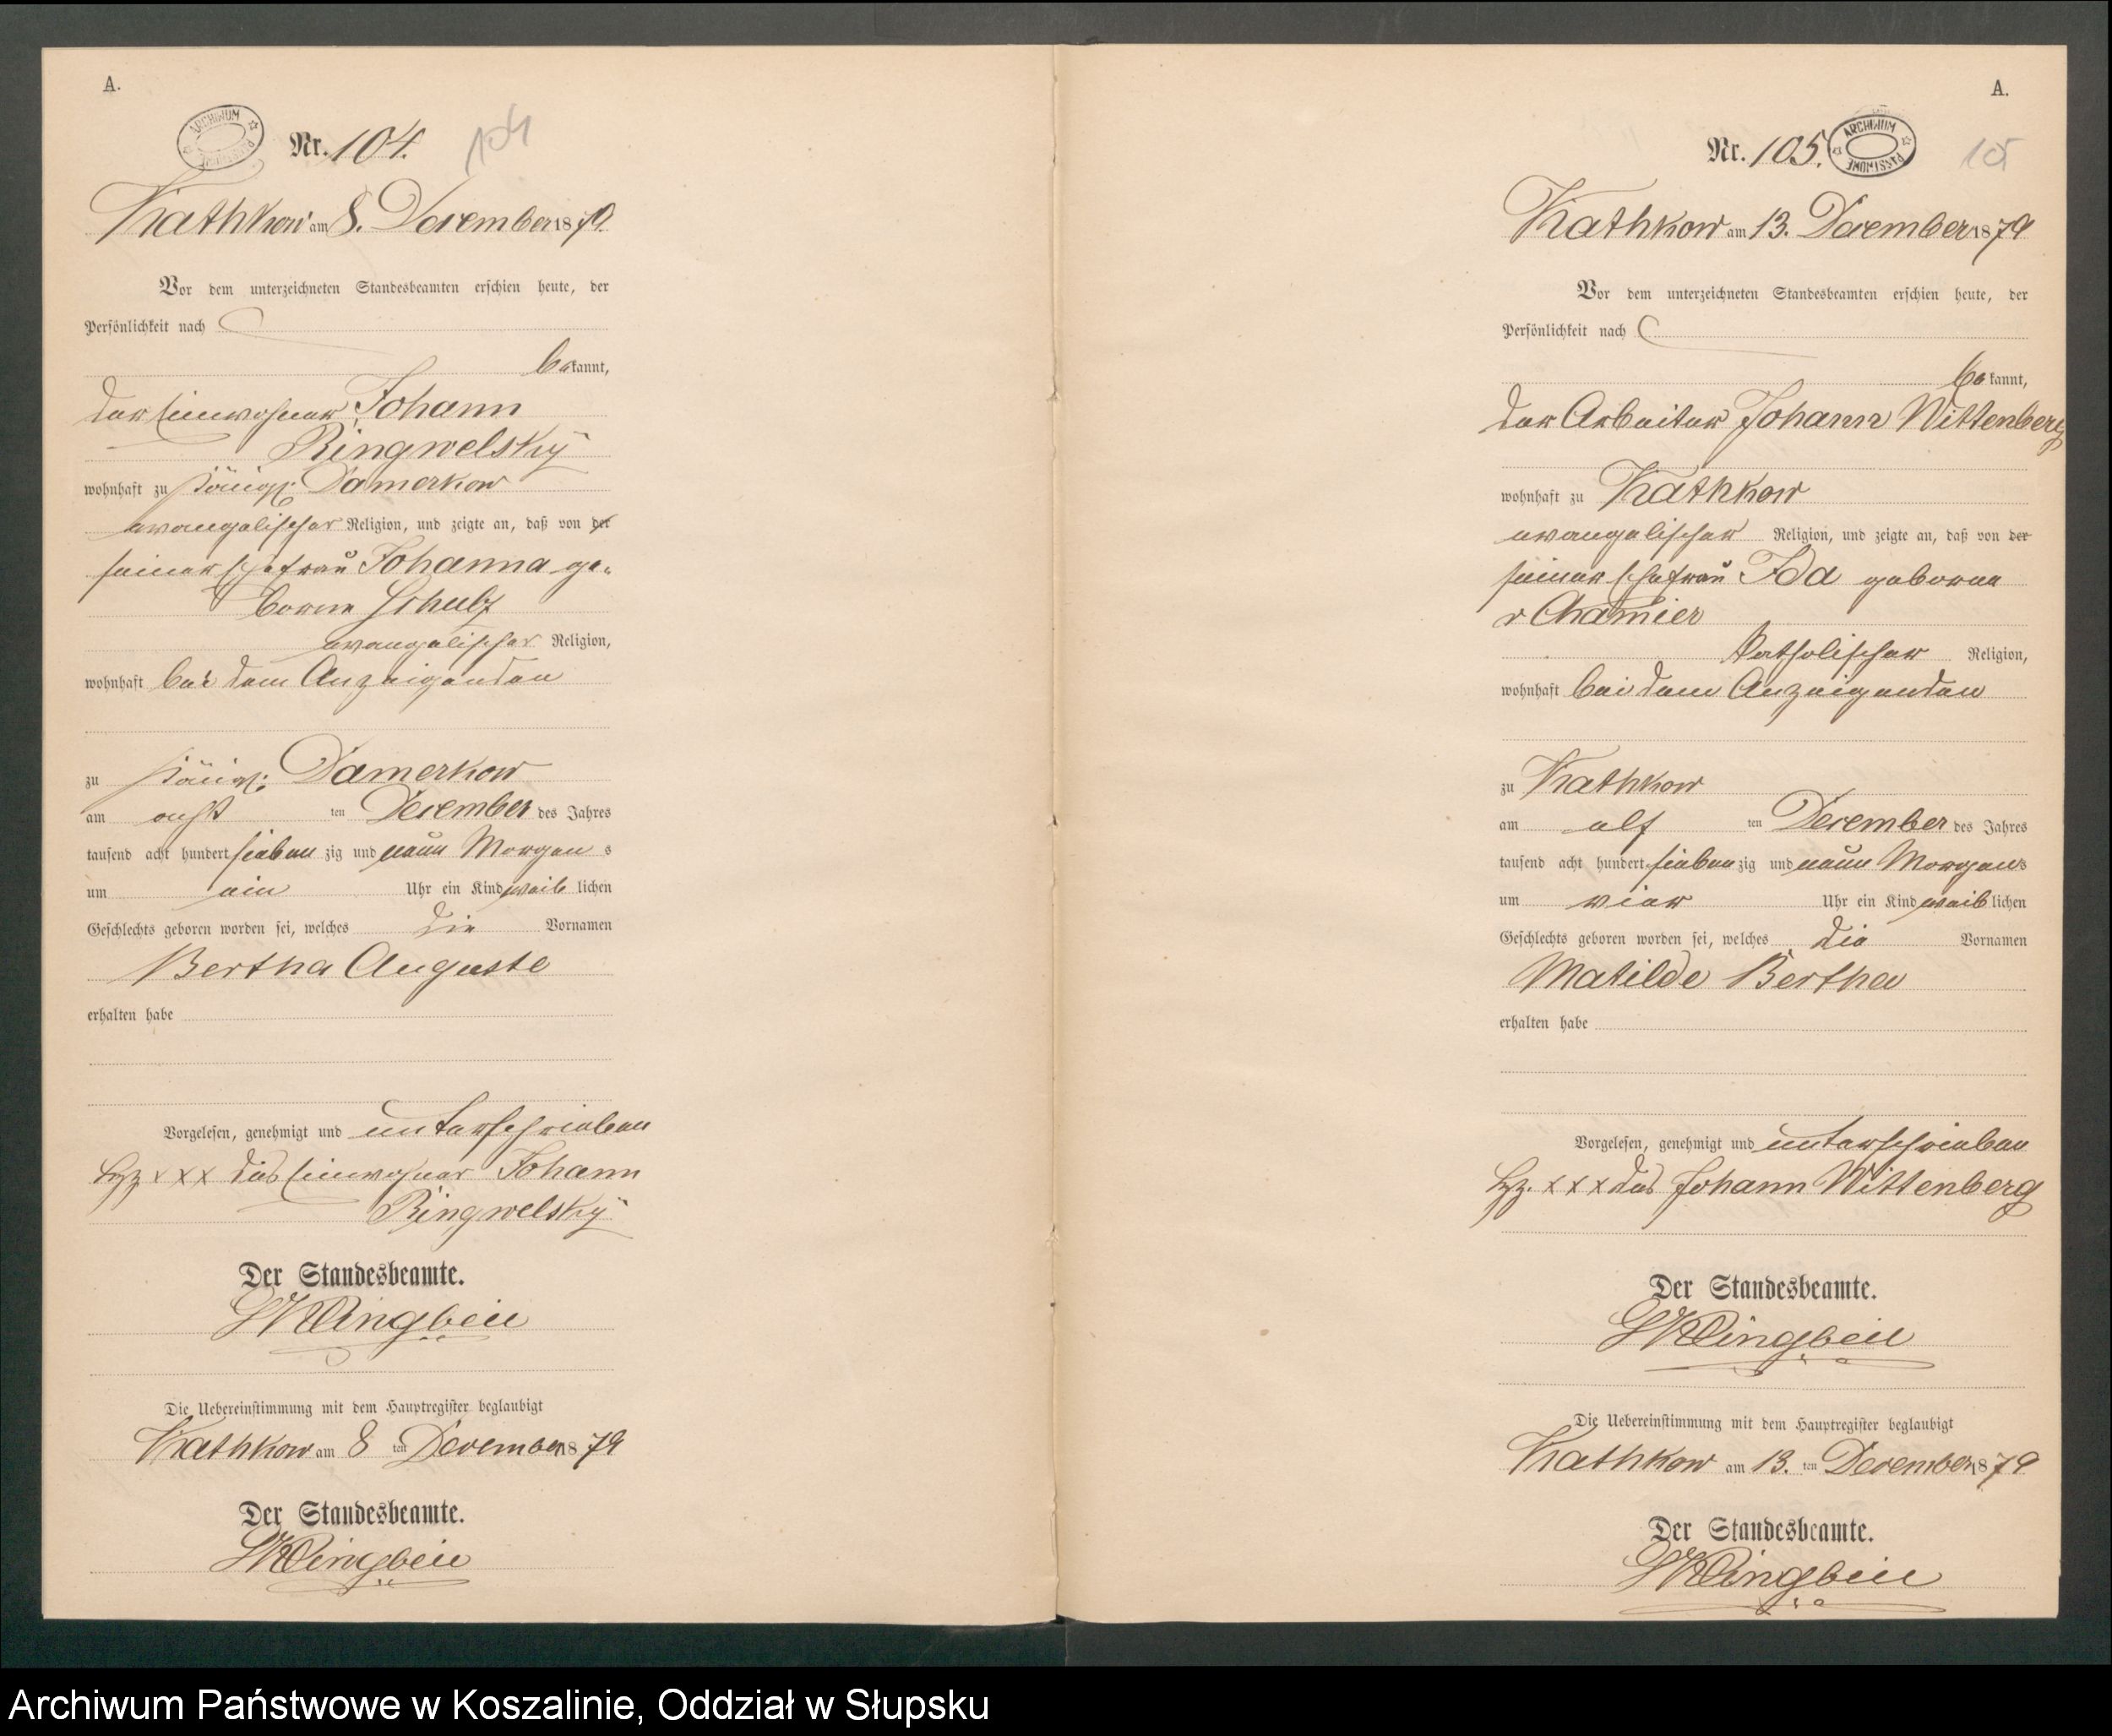 A.
ARCHIWUM PAŃSTWOWE
Nr. 104.
104
Kathkow am 8. December 1879.
Vor dem unterzeichneten Standesbeamten erschien heute, der
Persönlichkeit nach
bekannt,
der Einwohner Johann
Ringwelsky
wohnhaft zu Königl: Damerkow
evangelischer Religion, und zeigte an, daß von der
seiner Ehefrau Johanna ge-
borne Schulz
evangelischer Religion,
wohnhaft bei dem Anzeigenden
zu Königl: Damerkow
am acht ten December des Jahres
tausend acht hundert siebenzig und neun Morgens
um ein Uhr ein Kind weiblichen
Geschlechts geboren worden sei, welches die Vornamen
Bertha Auguste
erhalten habe
Vorgelesen, genehmigt und unterschrieben
Hz. xxx des Einwohner Johann
Ringwelsky
Der Standesbeamte.
Klingbeil
Die Uebereinstimmung mit dem Hauptregister beglaubigt
Kathkow am 8 ten December 1879
Der Standesbeamte.
Klingbeil
A.
Nr. 105.
ARCHIWUM PAŃSTWOWE
105
Kathkow am 13. December 1879
Vor dem unterzeichneten Standesbeamten erschien heute, der
Persönlichkeit nach
bekannt,
der Arbeiter Johann Wittenberg
wohnhaft zu Kathkow
evangelischer Religion, und zeigte an, daß von der
seiner Ehefrau Ida geborne
v Chamier
katholischer Religion,
wohnhaft bei dem Anzeigenden
zu Kathkow
am elf ten December des Jahres
tausend acht hundert siebenzig und neun Morgens
um vier Uhr ein Kind weiblichen
Geschlechts geboren worden sei, welches die Vornamen
Matilde Bertha
erhalten habe
Vorgelesen, genehmigt und unterschrieben
Hz. xxx des Johann Wittenberg
Der Standesbeamte.
Klingbeil
Die Uebereinstimmung mit dem Hauptregister beglaubigt
Kathkow am 13. ten December 1879
Der Standesbeamte.
Klingbeil
Archiwum Państwowe w Koszalinie, Oddział w Słupsku